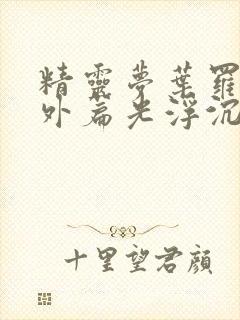 精靈夢葉羅
外扁光浮沉
十里望君顔